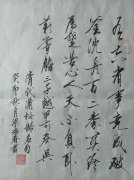 有志者事竟成破
釜沉舟百二秦關終
屬楚苦心人天不負臥
薪嘗膽三千越甲可吞吳
清代蒲松齡名句